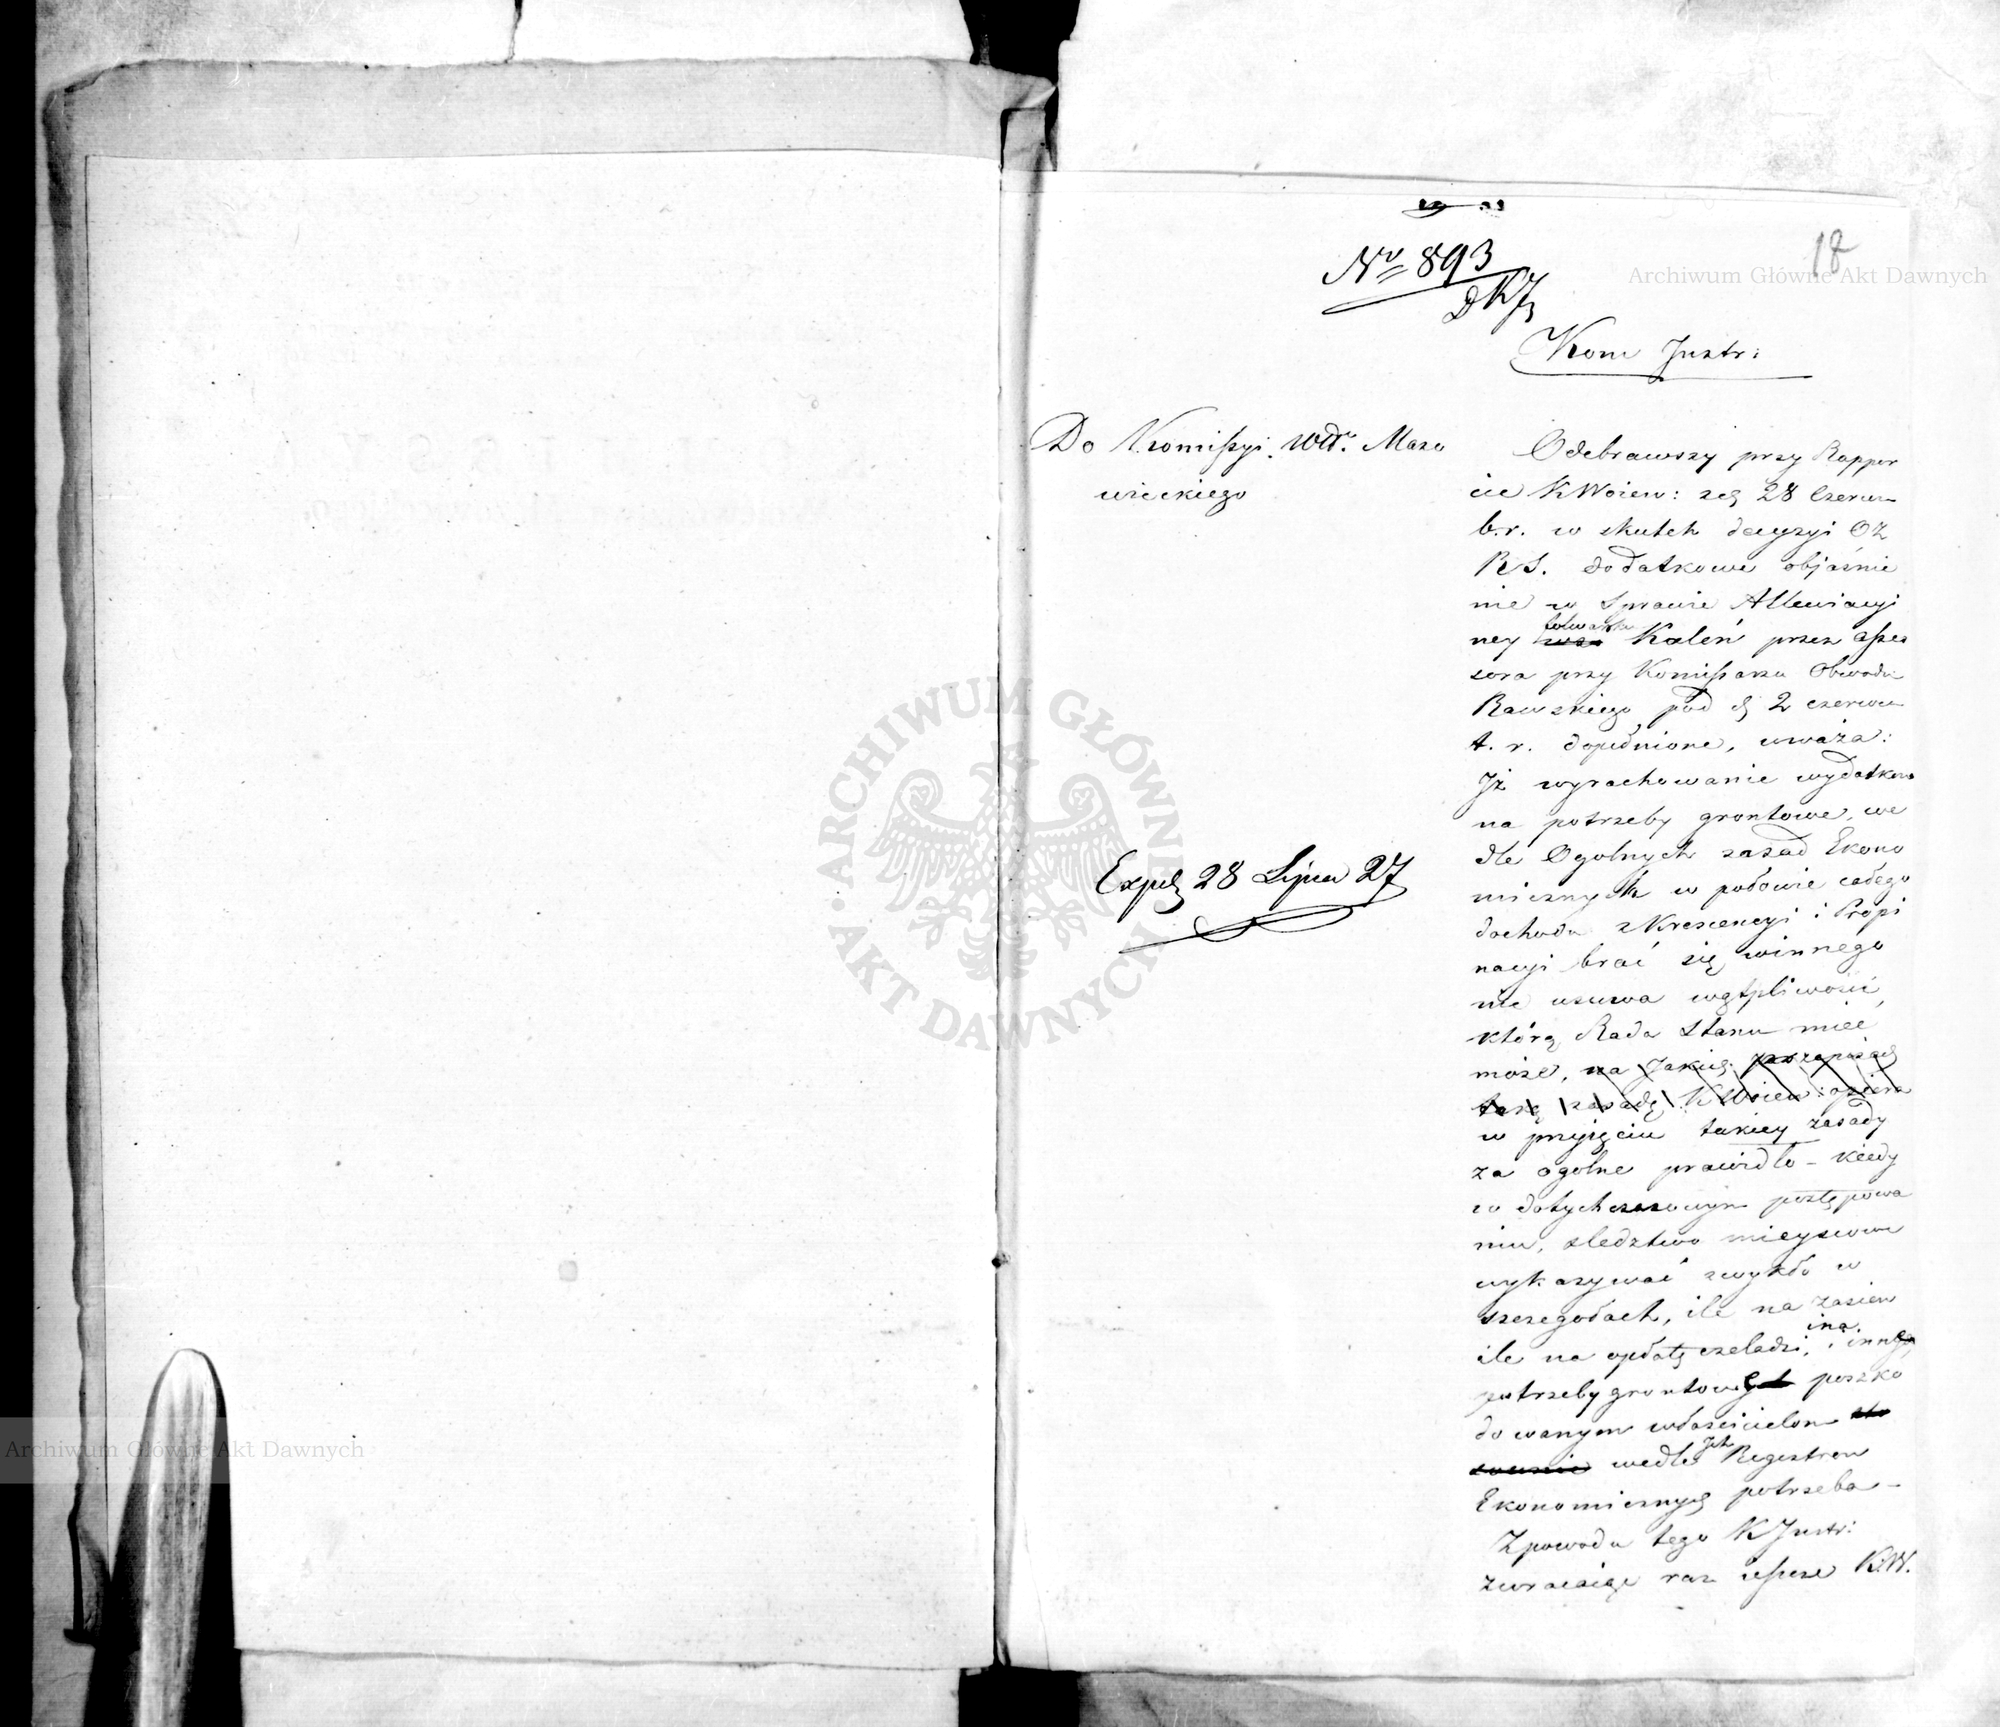 18
Nr 893
DKJ
Kom Justr:
Do Komissyi Wdr. Mazo
wieckiego
Exped 28 Lipca 27
Odebrawszy przy Rappor
cie KWoiew: z d 28 Czerwca
b.r. w skutek decyzyi
RS. dodatkowe objaśnie
nie w Sprawie Allewiacyi
ney folwarku Kaleń przez Asses
sora przy Komissarzu Obwodu
Rawskiego pod d 2 czerwca
t. r. dopełnione, uważa:
Iż wyrachowanie wydatków
na potrzeby grontowe, we
dle Ogolnych zasad Ekono
micznych w połowie całego
dochodu z Krescencyi i Propi
nacyi brać się winnego
nie usuwa wątpliwości
którą Rada Stanu mieć
może, na jakiey
zasadę K Woiew: opiera
w przyięciu takiey zasady
za ogolne prawidło - kiedy
w dotychczasowym postępowa
niu, sledztwo mieyscowe
wykazywać zwykło w
szczegołach, ile na zasiew
ile na opłatę czeladzi, i na inne
potrzeby grontowe poszko
dowanym właścicielom
wedle Ich Regestrow
Ekonomicznych potrzeba -
Z powodu tego K Justr:
zwracaiąc raz ieszcze K.W.
Archiwum Główne Akt Dawnych
Archiwum Główne Akt Dawnych
ARCHIWUM GŁÓWNE
AKT DAWNYCH